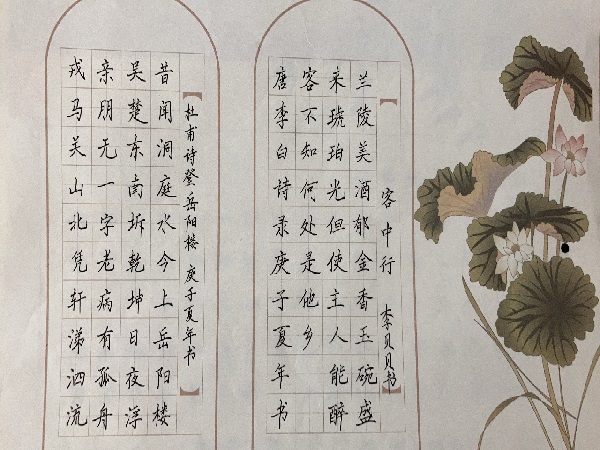 客中行 李贝贝书
兰陵美酒郁金香玉碗盛
来琥珀光但使主人能醉
客不知何处是他乡
唐李白诗录庚子夏年书
杜甫诗登岳阳楼 庚子夏年书
昔闻洞庭水今上岳阳楼
吴楚东南坼乾坤日夜浮
亲朋无一字老病有孤舟
戎马关山北凭轩涕泗流